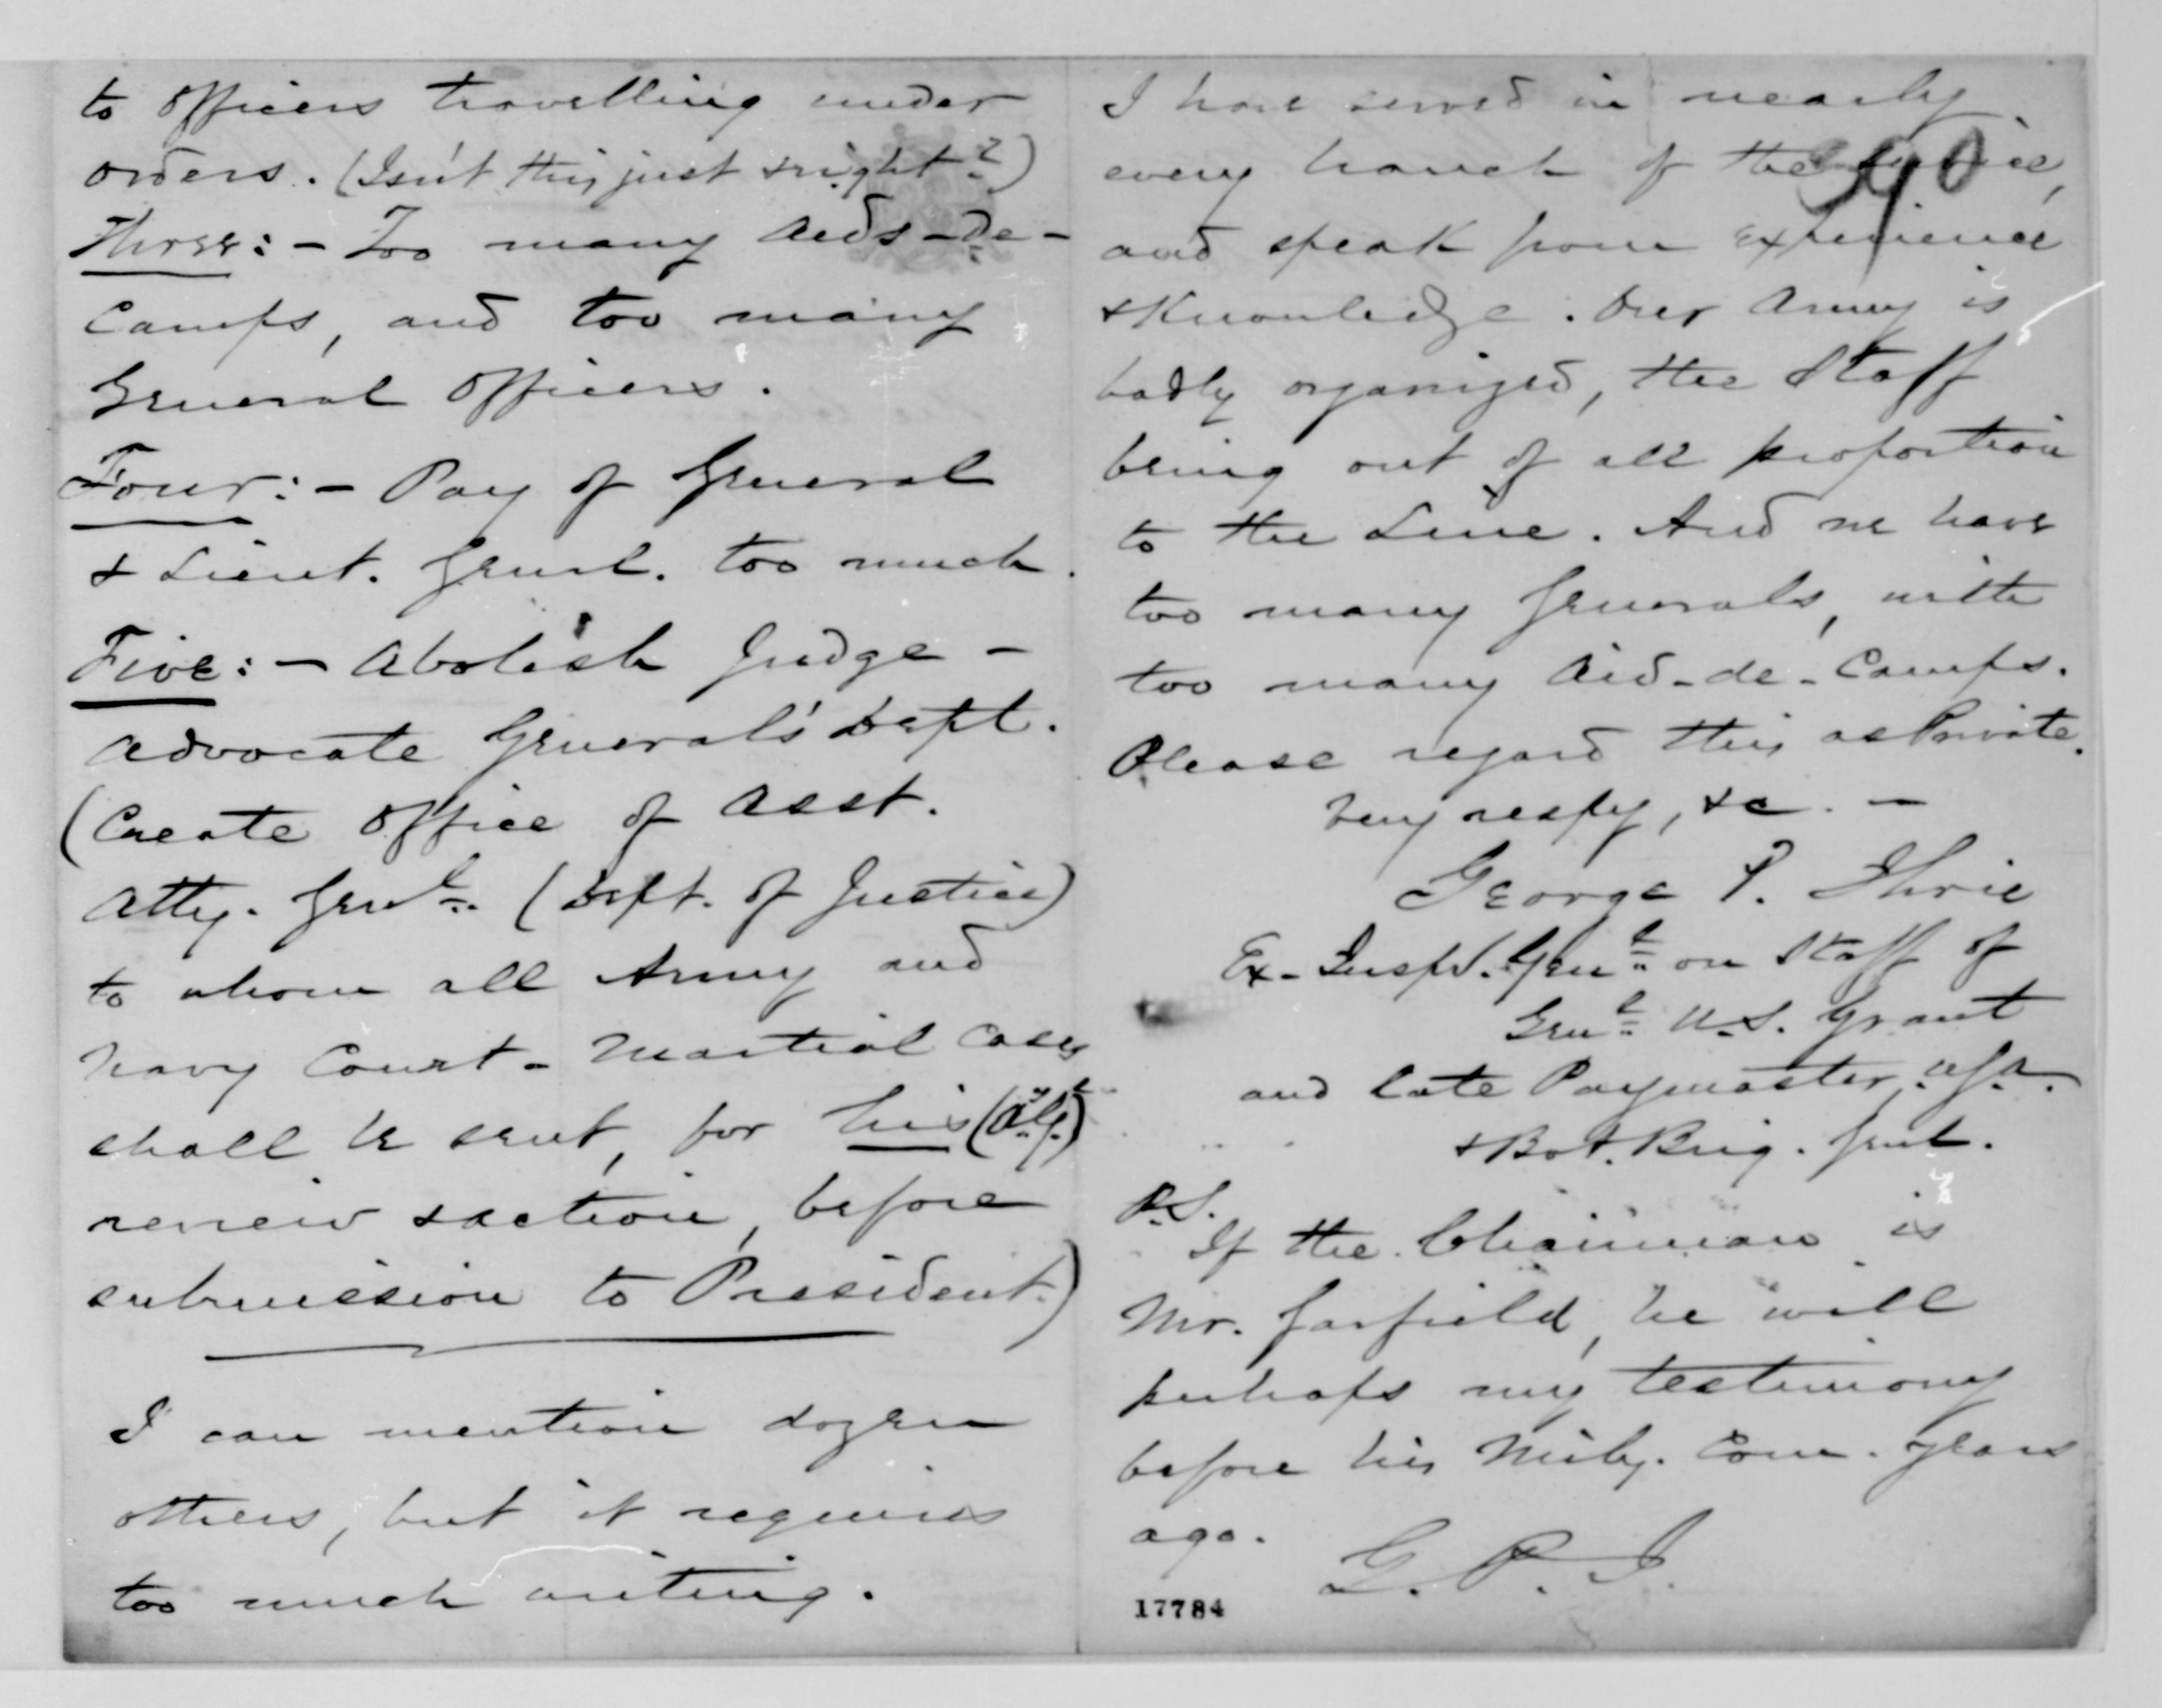 to officers travelling under
orders. (Isn't this just & right?)
Three:- Too many Aids-de-
Camps, and too many
General Officers.
Four:- Pay of General
& Lieut. Genrl. too much.
Five:- Abolish Judge-
Advocate General's Dept.
(Create Office of Asst.
Atty. Genl. (Dept. of Justice)
to whom all Army and
Navy Court-Martial cases
shall be sent, for his
review & action, before
submission to President.)
I can mention dozen
others, but it requires
too much writing.
I have served in nearly
every branch of the service,
and speak from experience
& Knowledge. Our Army is
badly organized, the Staff
being out of all proportion
to the Line. And we have
too many Generals, with
too many Aid-de-Camps.
Please regard this as Private.
Very respfy, &c. -
George P. Ihrie
Ex-Inspr. Genl. on Staff of
Genl. U.S. Grant
and late Paymaster, U.S.A.
& Bvt. Brig. Genl.
P.S.
If the Chairman is
Mr. Garfield, he will
perhaps my testimony
before his Mily. Com. years
ago.
G. P. I.
17784